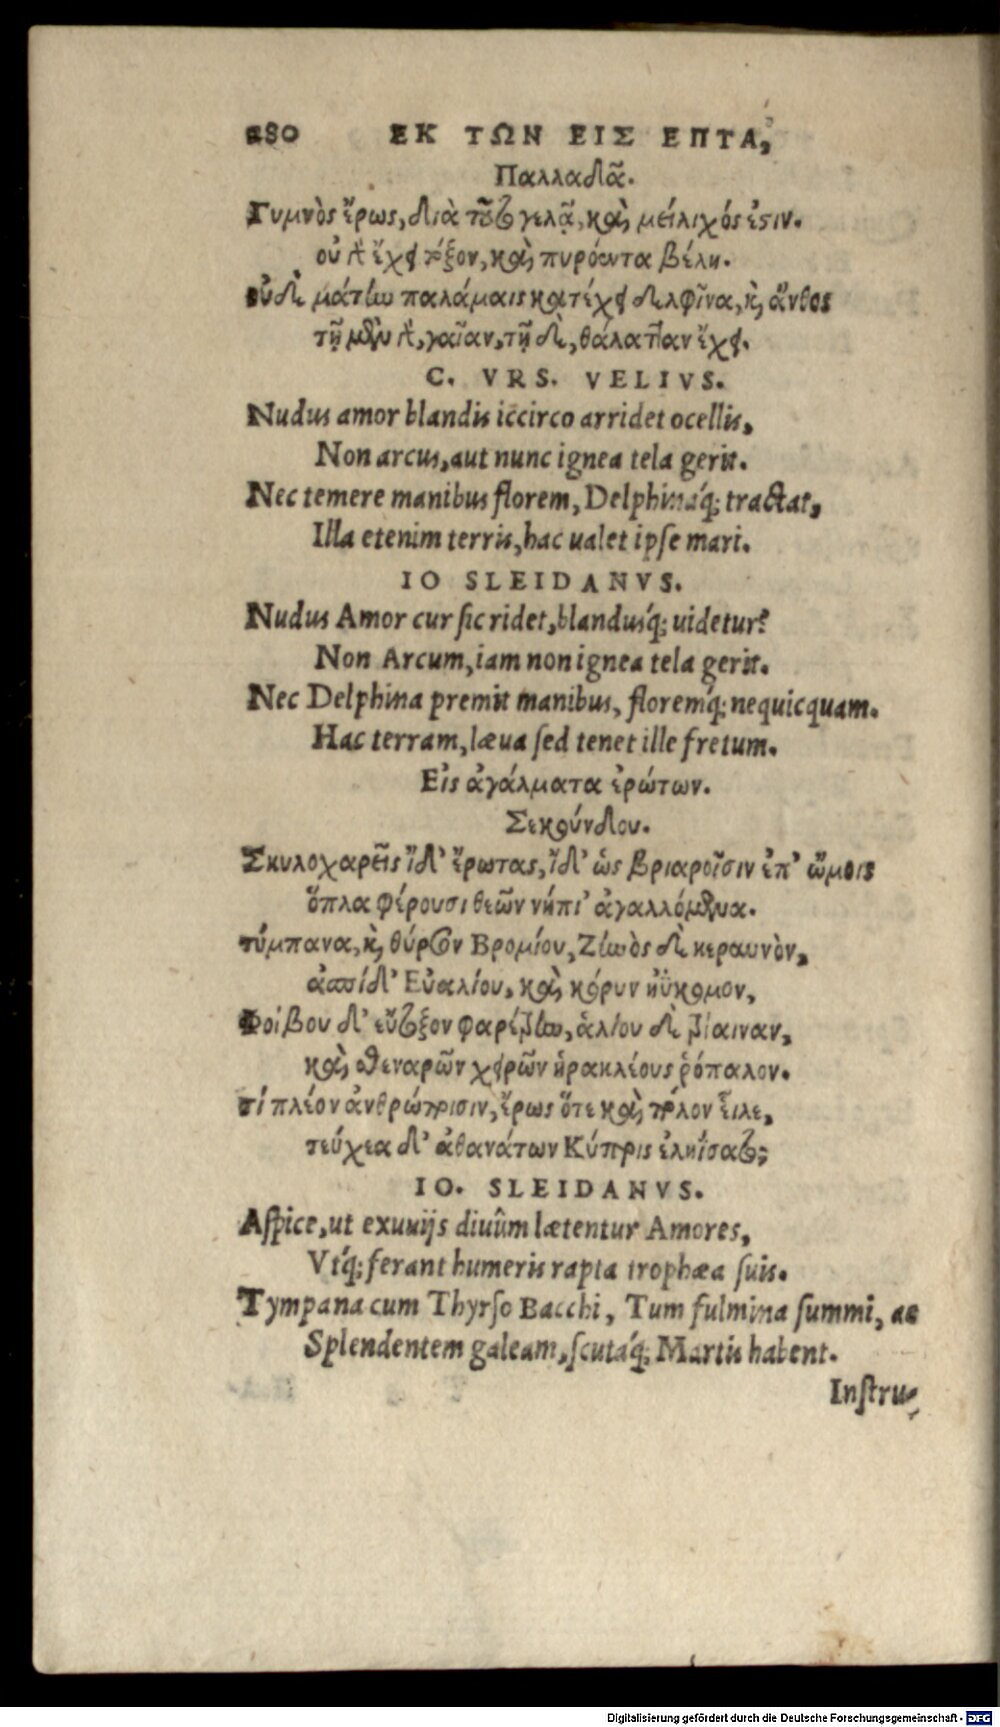 280 ΕΚ ΤΩΝ ΕΙΣ ΕΠΤΑ,
Παλλαδᾶ.
Γυμνὸς ἔρως, διὰ τοῦτο γελᾷ, καὶ μείλιχός ἐστιν.
οὐ γὰρ ἔχει τόξον, καὶ πυρόεντα βέλη.
οὐδὲ μάτην παλάμαις κατέχει δελφῖνα, κὶ ἄνθος
τῇ μὲν γὰρ, γαῖαν, τῇ δὲ, θάλατταν ἔχει.
C. VRS. VELIVS.
Nudus amor blandis iccirco arridet ocellis,
Non arcus, aut nunc ignea tela gerit.
Nec temere manibus florem, Delphinaq́; tractat,
Illa etenim terris, hac ualet ipſe mari.
IO SLEIDANVS.
Nudus Amor cur ſic ridet, blanduśq; uidetur?
Non Arcum, iam non ignea tela gerit.
Nec Delphina premit manibus, floremq́; nequicquam.
Hac terram, læua ſed tenet ille fretum.
Εἰς ἀγάλματα ἐρώτων.
Σεκούνδου.
Σκυλοχαρεῖς ἴδ' ἔρωτας, ἴδ' ὡς βριαροῖσιν ἐπ' ὤμοις
ὅπλα φέρουσι θεῶν νήπι' ἀγαλλόμενα.
τύμπανα, κὶ θύρσον Βρομίου, Ζίωὸς δὲ κεραυνὸν,
ἀσπίδ' Εὐαλίου, καὶ κόρυν ἠΰκομον,
Φοίβου δ' εὔτοξον φαρέτρίω, ἁλίου δὲ τρίαιναν,
καὶ σθεναρῶν χειρῶν ἡρακλέους ῥόπαλον.
τί πλέον ἀνθρώποισιν, ἔρως ὅτε καὶ πόλον εἷλε,
τεύχεα δ' ἀθανάτων Κύπρις ἐληΐσατο;
IO. SLEIDANVS.
Aſpice, ut exuuijs diuûm lætentur Amores,
Vtq́; ferant humeris rapta trophæa ſuis.
Tympana cum Thyrſo Bacchi, Tum fulmina ſummi, ac
Splendentem galeam, ſcutaq́; Martis habent.
Inſtru-
Digitalisierung gefördert durch die Deutsche Forschungsgemeinschaft - DFG